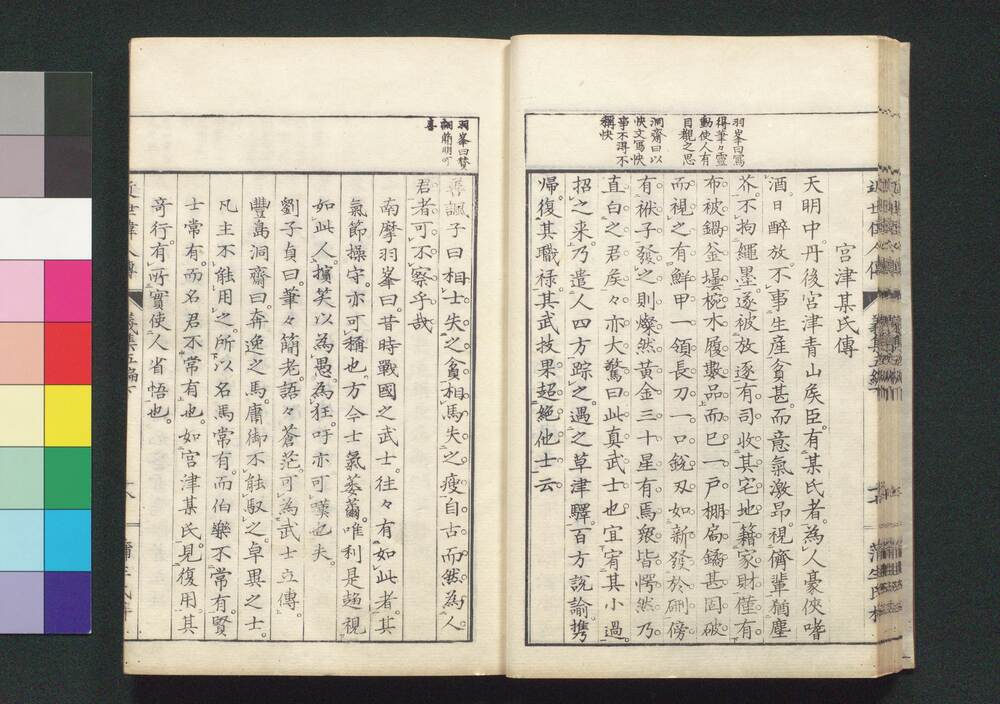 宮津某氏傳
天明中丹後宮津青山矦臣有某氏者為人豪俠嗜
酒日醉放不事生産貧甚而意氣激昂視儕輩猶塵
芥不拘繩墨遂被放逐有司收其宅地籍家財僅有
布被鍋釜壜椀木履數品而已一戸棚扃鐍甚固破
而視之有鮮甲一領長刀一口銳刃如新發於硎傍
有袱子發之則燦然黃金三十星有焉衆皆愕然乃
直白之君矦々亦大驚曰此真武士也宜宥其小過
招之来乃遣人四方踪之遇之草津驛百方説諭携
帰復其職禄其武技果超絶他士云
羽峯曰寫
得筆々靈
動使人有
目覩之思
洞齋曰以
快文寫快
事不得不
稱快
善諷子曰相士失之貧相馬失之瘦自古而然為人
君者可不察乎哉
南摩羽峯曰昔時戰國之武士往々有如此者其
氣節操守亦可稱也方今士氣萎薾唯利是趨視
如此人擯笑以為愚為狂吁亦可嘆也夫
劉子貞曰筆々簡老語々蒼茫可為武士立傳
豐島洞齋曰奔逸之馬庸御不能馭之卓異之士
凡主不能用之所以名馬常有而伯樂不常有賢
士常有而名君不常有也如宮津某氏見復用其
奇行有所實使人省悟也
羽峯曰贊
簡明可
喜